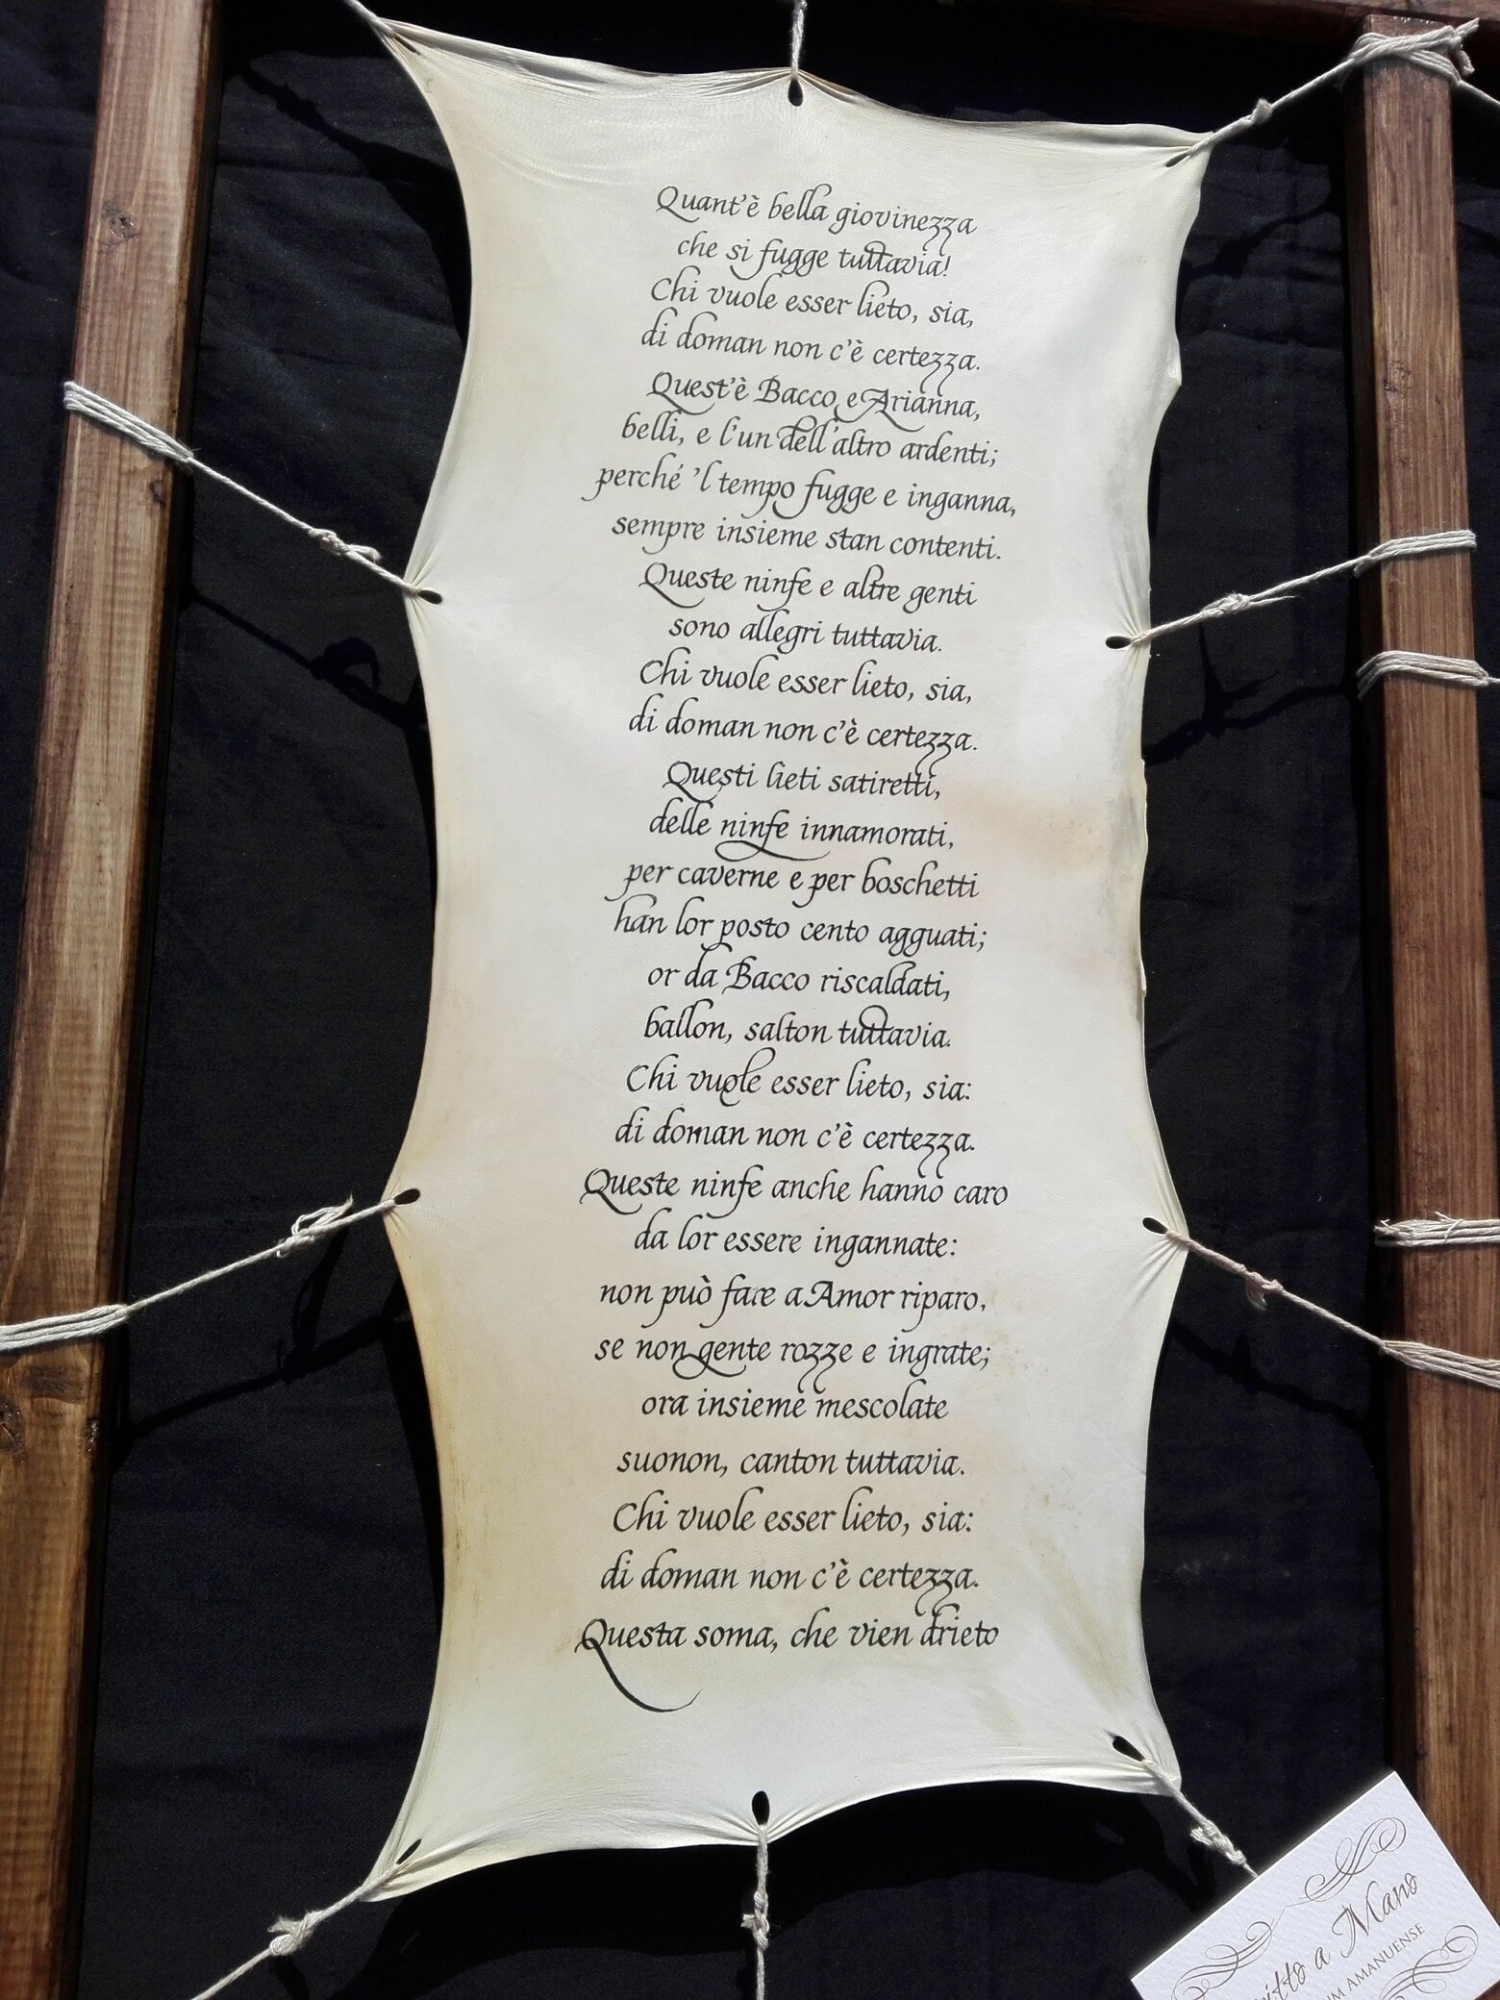 Quant'è bella giovinezza
che si fugge tuttavia!
Chi vuole esser lieto, sia,
di doman non c'è certezza.
Quest'è Bacco e Arianna,
belli, e l'un dell'altro ardenti;
perché 'l tempo fugge e inganna,
sempre insieme stan contenti.
Queste ninfe e altre genti
sono allegri tuttavia.
Chi vuole esser lieto, sia,
di doman non c'è certezza.
Questi lieti satiretti,
delle ninfe innamorati,
per caverne e per boschetti
han lor posto cento agguati;
or da Bacco riscaldati,
ballon, salton tuttavia.
Chi vuole esser lieto, sia:
di doman non c'è certezza.
Queste ninfe anche hanno caro
da lor essere ingannate:
non può fare a Amor riparo,
se non gente rozze e ingrate;
ora insieme mescolate
suonon, canton tuttavia.
Chi vuole esser lieto, sia:
di doman non c'è certezza.
Questa soma, che vien drieto
a Mano
AMANUENSE